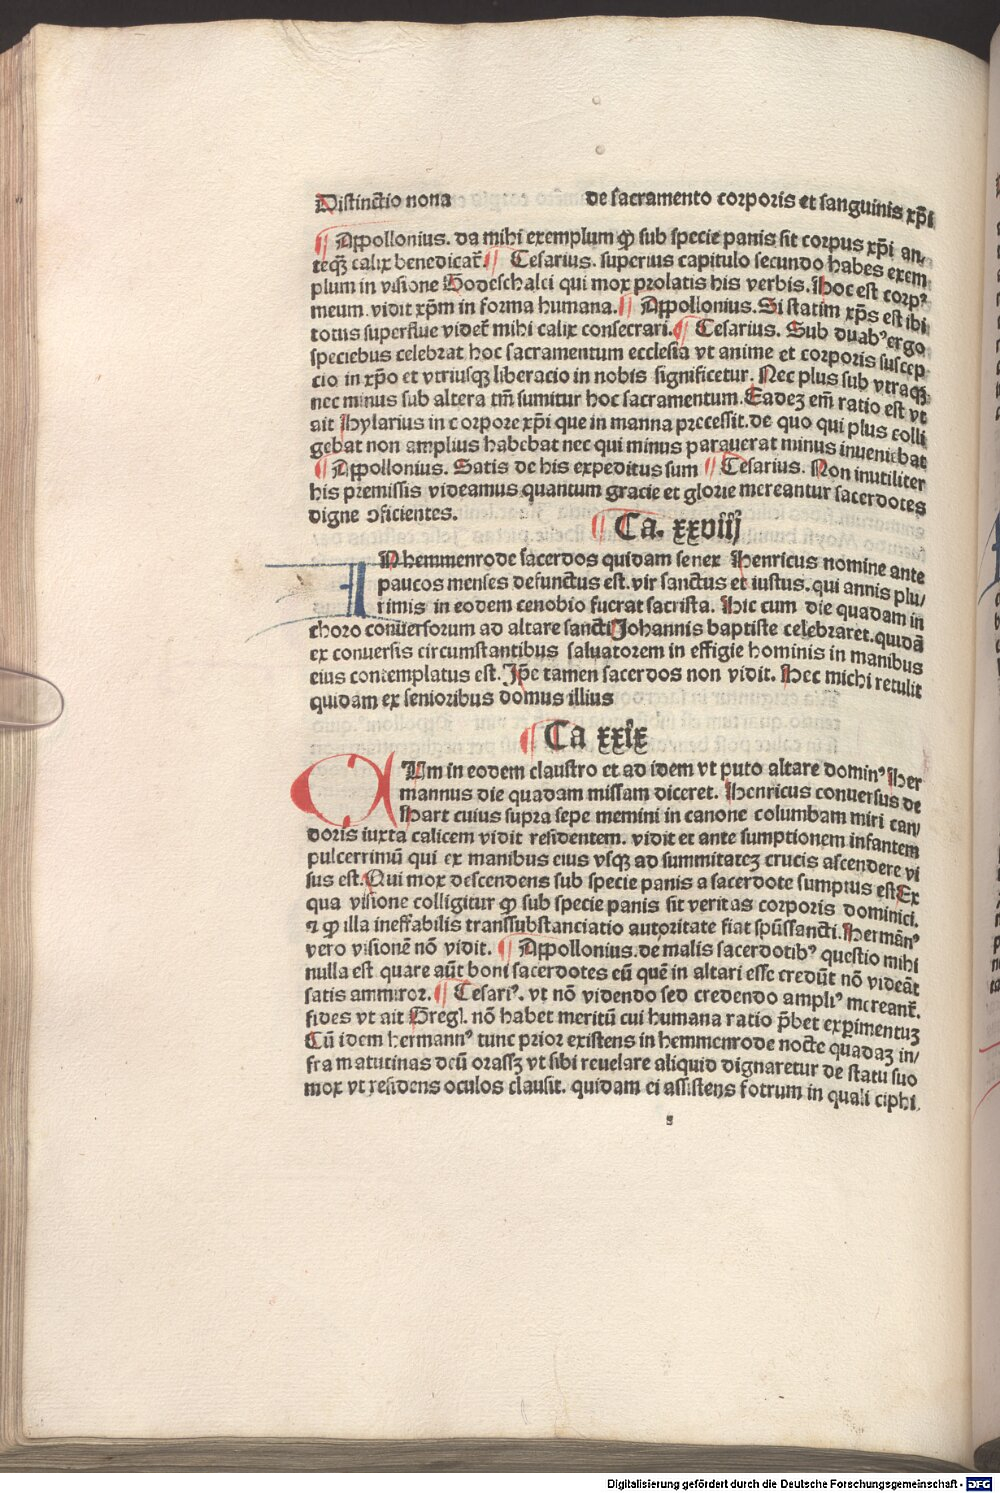 Distinctio nona de sacramento corporis et sanguinis xp̄i
¶ Appollonius. da mihi exemplum ꝙ sub specie panis sit corpus xp̄i an⸗
teqꝫ calix benedicat᷑. ¶ Cesarius. superius capitulo secundo habes exem
plum in visione Godeschalci qui mox prolatis his verbis. Hoc est corpꝰ
meum vidit xp̄m in forma humana. ¶ Appollonius. Si statim xp̄s est ibi
totus superflue videt᷑ mihi calix consecrari. ¶ Cesarius. Sub duabꝰ ergo
speciebus celebrat hoc sacramentum ecclesia vt anime et corporis suscep
cio in xp̄o et vtriusqꝫ liberacio in nobis significetur. Nec plus sub vtraqꝫ
nec minus sub altera tm̄ sumitur hoc sacramentum. Eadeꝫ em̄ ratio est vt
ait Hylarius in corpore xp̄i que in manna precessit. de quo qui plus colli
gebat non amplius habebat nec qui minus parauerat minus inueniebat
¶ Appollonius. Satis de his expeditus sum ¶ Cesarius. Non inutiliter
his premissis videamus quantum gracie et glorie mereantur sacerdotes
digne ꝯficientes.
¶ Ca. xxviij
IN hemmenrode sacerdos quidam senex Henricus nomine ante
paucos menses defunctus est. vir sanctus et iustus. qui annis plu⸗
rimis in eodem cenobio fuerat sacrista. Hic cum die quadam in
choro conuersorum ad altare sancti Johannis baptiste celebraret. quidā
ex conuersis circumstantibus saluatorem in effigie hominis in manibus
eius contemplatus est. Ip̄e tamen sacerdos non vidit. Hec michi retulit
quidam ex senioribus domus illius
¶ Ca xxix
CUm in eodem claustro et ad idem vt puto altare dominꝰ Her
mannus die quadam missam diceret. Henricus conuersus de
Hart cuius supra sepe memini in canone columbam miri can⸗
doris iuxta calicem vidit residentem. vidit et ante sumptionem infantem
pulcerrimū qui ex manibus eius vsqꝫ ad summitateꝫ crucis ascendere vi
sus est. Qui mox descendens sub specie panis a sacerdote sumptus est Ex
qua visione colligitur ꝙ sub specie panis sit veritas corporis dominici.
⁊ ꝙ illa ineffabilis transsubstanciatio autoritate fiat sp̄ussancti. Hermānꝰ
vero visionē nō vidit. ¶ Appollonius. de malis sacerdotibꝰ questio mihi
nulla est quare aūt boni sacerdotes eū quē in altari esse credūt nō videāt
satis ammiror. ¶ Cesariꝰ. vt nō videndo sed credendo ampliꝰ mereant᷑.
fides vt ait Gregl. nō habet meritū cui humana ratio p̄bet experimentuꝫ
Cū idem hermannꝰ tunc prior existens in hemmenrode nocte quadaꝫ in⸗
fra matutinas deū orassꝫ vt sibi reuelare aliquid dignaretur de statu suo
mox vt residens oculos clausit. quidam ei assistens fotrum in quali ciphi
s
Digitalisierung gefördert durch die Deutsche Forschungsgemeinschaft - DFG